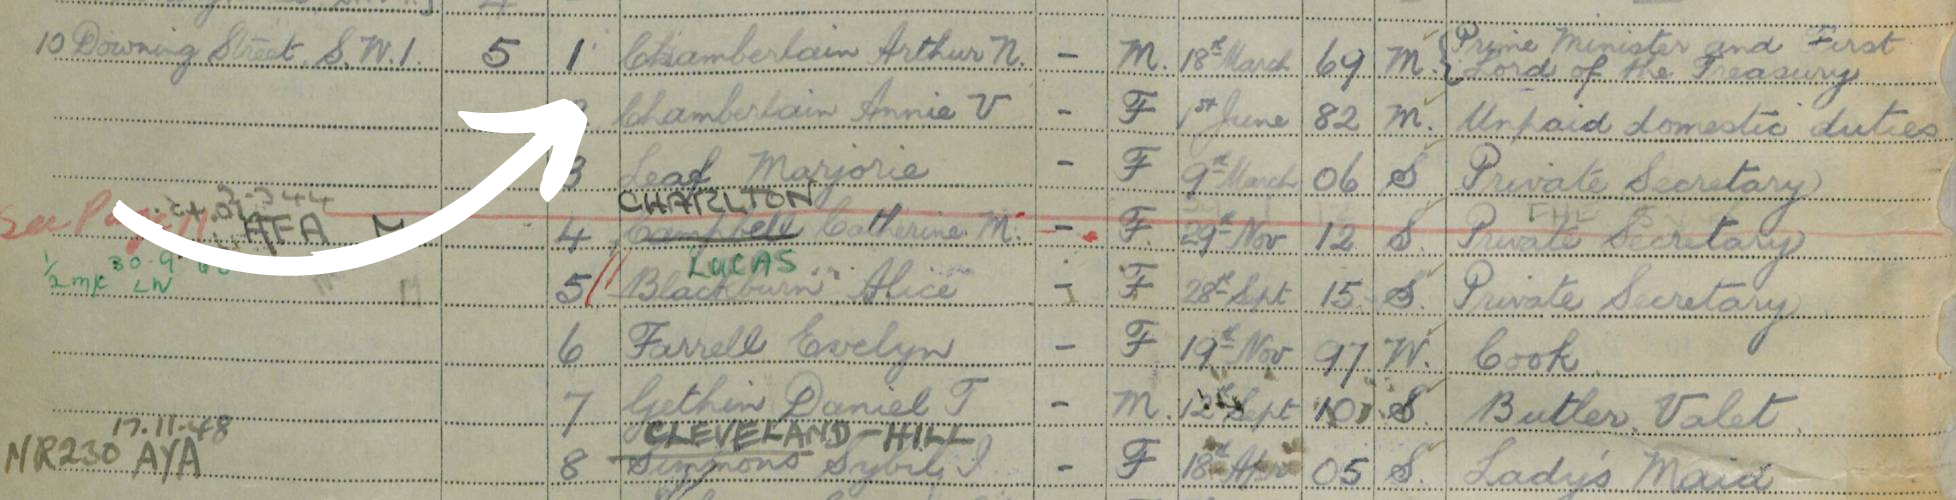 10 Downing Street, S.W.1. 5 1 Chamberlain Arthur N. - M. 18th March 69 M. { Prime Minister and First
Lord of the Treasury
Chamberlain Annie V - F 1st June 82 M. Unpaid domestic duties
3 Leaf Marjorie - F 9th March 06 S Private Secretary
CHARLTON
See Page AFA 4 Campbell Catherine M. - F. 29th Nov 12 S. Private Secretary
LUCAS
1/2 m/c 30.9 LW 5 Blackburn Alice - F 28th Sept 15 S. Private Secretary
6 Farrell Evelyn - F 19th Nov 97 W. Cook
7 Gethin Daniel T - M. 12th Sept 10 S Butler, Valet
17.11.48 CLEVELAND-HILL
NR230 AYA 8 Simmons Sybil I - F 18th Apr 05 S. Lady's Maid